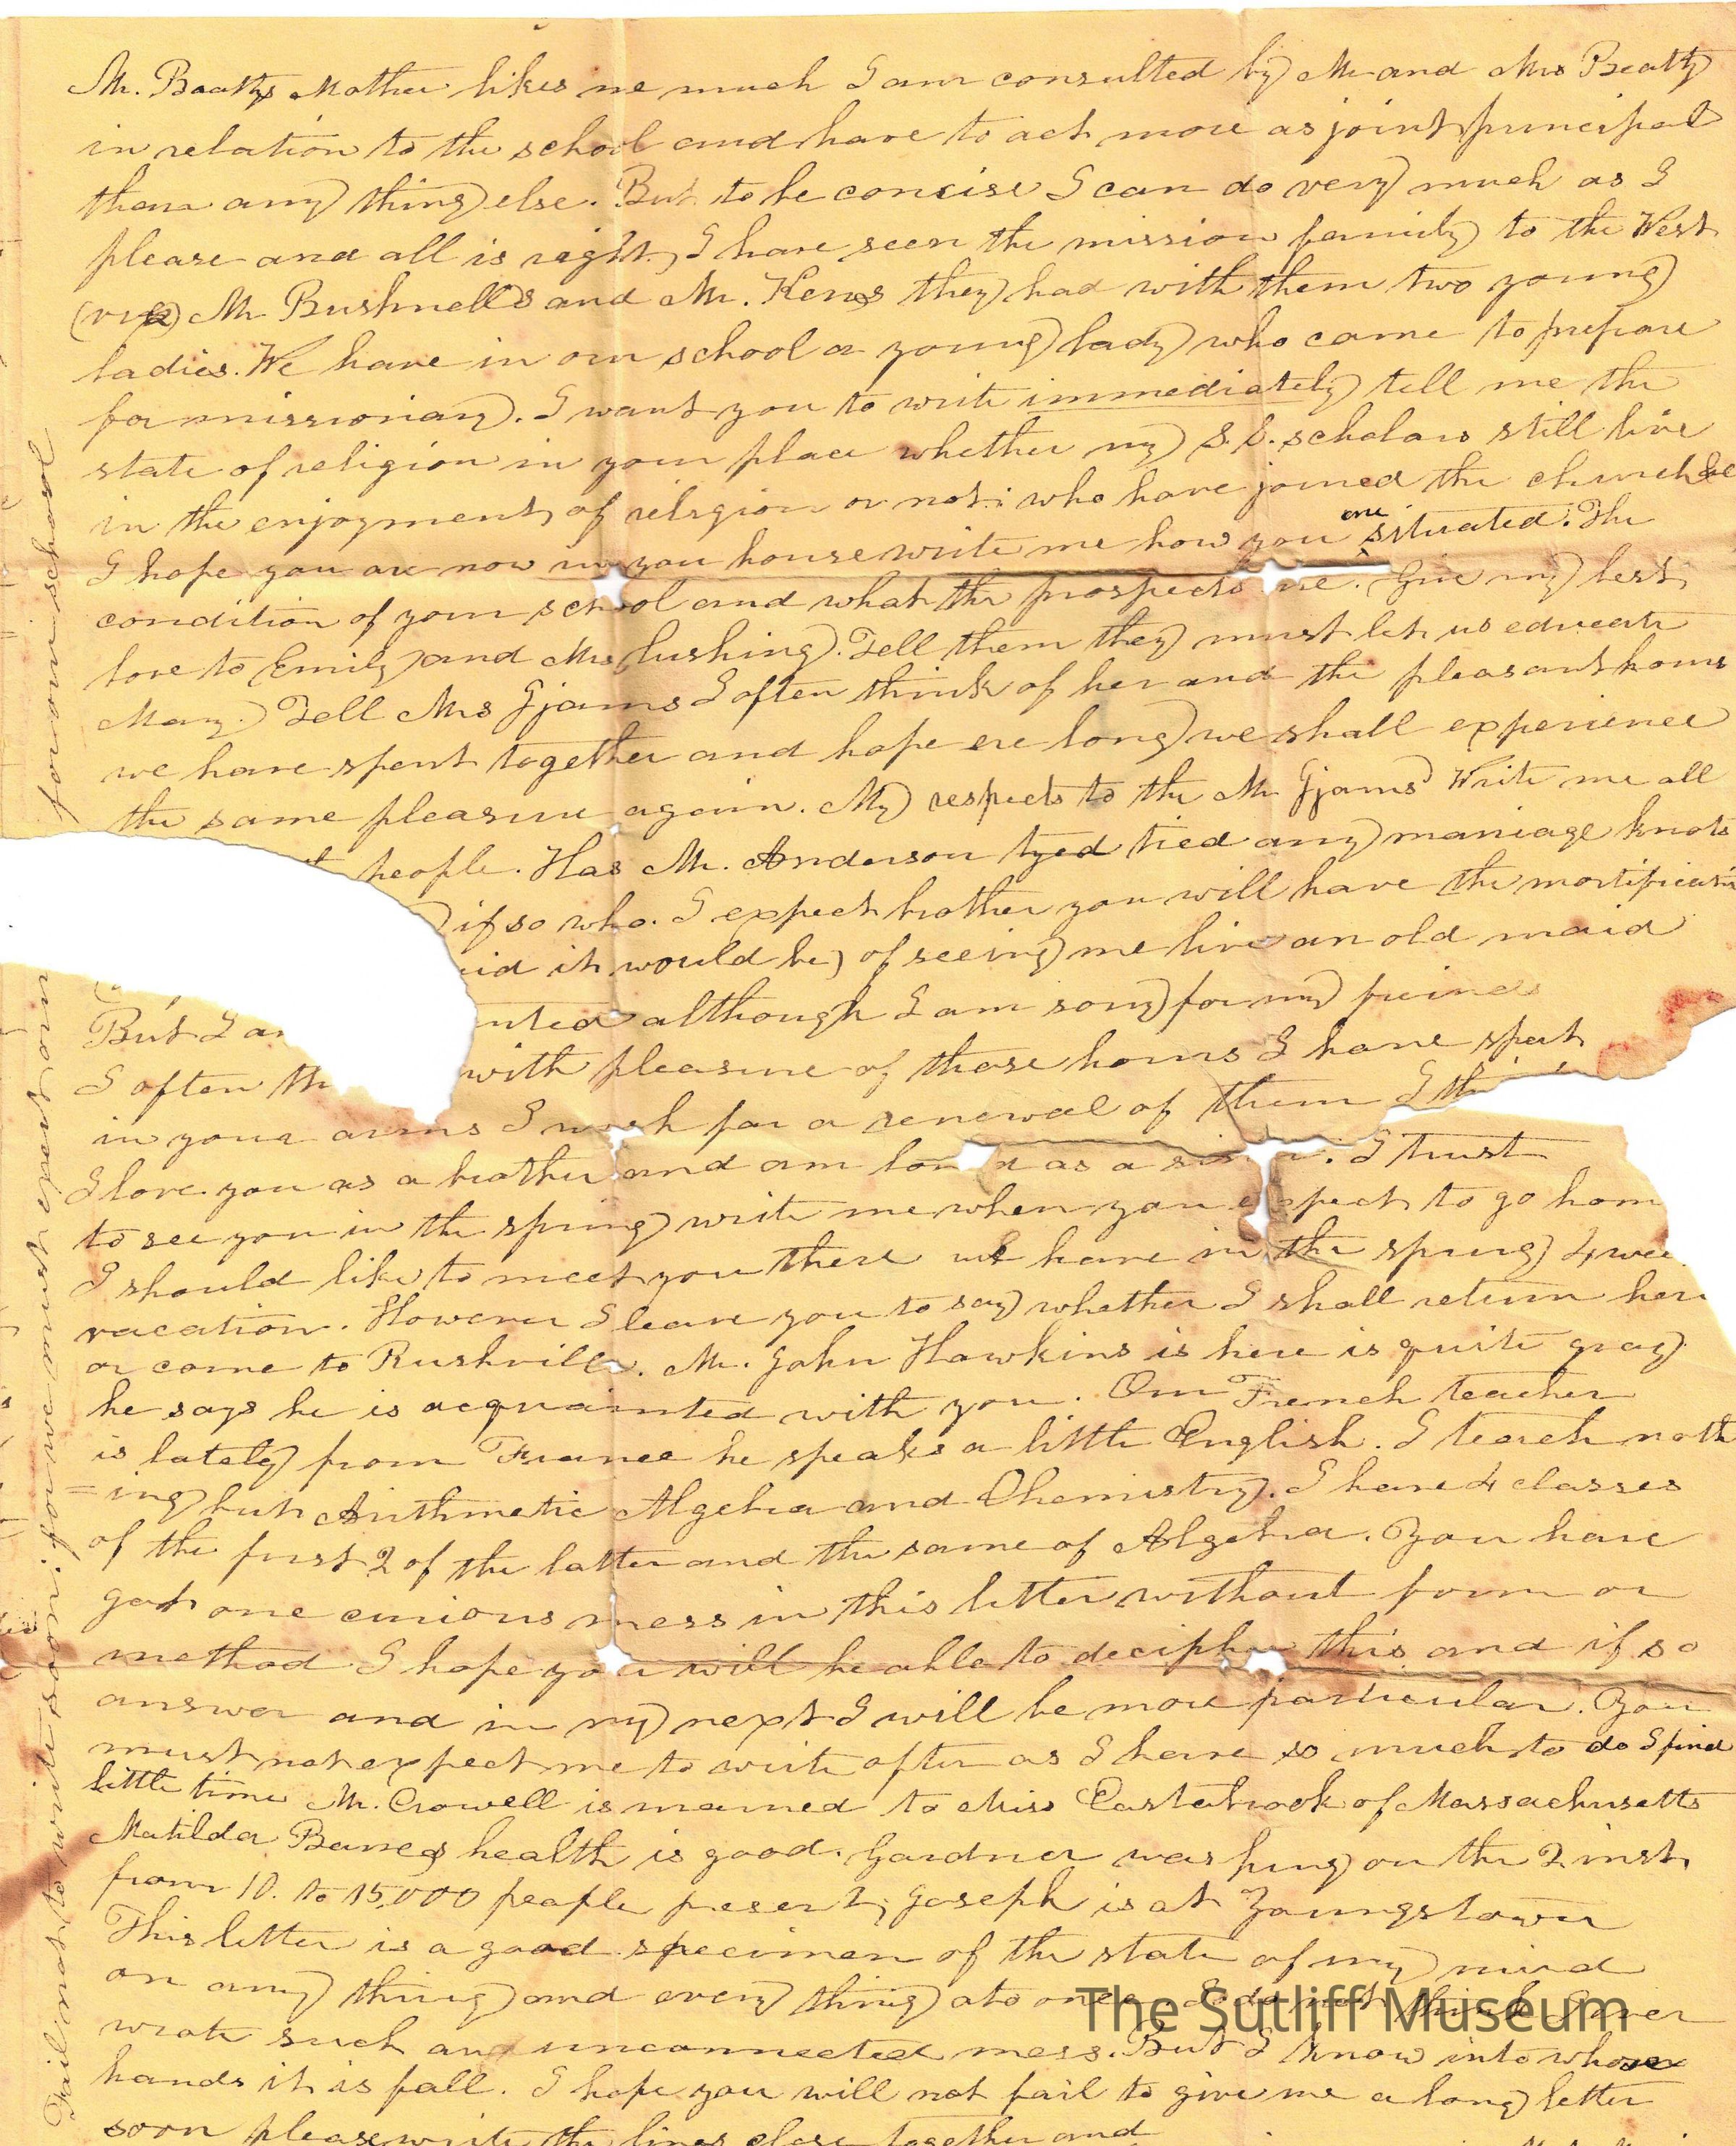 Mr. Beattys Mother likes me much I am consulted by Mr and Mrs Beatty
in relation to the school and have to act more as joint principal
than any thing else. But to be concise I can do very much as I
please and all is right, I have seen the mission family to the West
Mr. Bushnells and Mr. they had with them two young
ladies. We have in our school a young lady who came to prepare
for missionary. I want you to write immediately tell me the
state of religion in your place whether my S.S. scholars still live
in the enjoyment of religion or not: who have joined the church &c
I hope you are now in you house write me how you are situated. The
condition of your school and what the prospects are. Give my best
love to Emily and Mrs Cushing. Tell them they must let us educate
Mary. Tell Mrs Ijams I often think of her and the pleasant hours
we have spent together and hope ere long we shall experience
the same pleasure again. My respects to the Mr Ijams Write me all
people. Has Mr. Anderson tyed tied any marriage knots
if so who. I expect brother you will have the mortificati
it would be) of seeing me live an old maid
But I although I am sorry for my friends
I often with pleasure of those hours I have spent
in your arms I for a renewal of them I
I love you as a brother and am as a I trust
to see you in the spring write me when you expect to go hom
I should like to meet you there we have in the spring 4 wee
vacation. However I leave you to say whether I shall return her
or come to Rushville. Mr. John Hawkins is here is quite gray
he says he is acquainted with you. Our French teacher
is lately from France he speaks a little English. I teach noth
=ing but Arithmetic Algebra and Chemistry. I have 4 classes
of the first 2 of the latter and the same of Algebra. You have
got one curious mess in this letter without form or
method I hope you will be able to decipher this and if so
answer and in my next I will be more particular. You
must not expect me to write often as I have so much to do I find
little time Mr. Crowell is married to Miss Easterbrook of Massachusetts
Matilda health is good. Gardner was hung on the 2 inst.
from 10. to 15,000 people present; Joseph is at Youngstown
This letter is a good specimen of the state of my mind
on any thing and every thing at once I do not think I ever
wrote such an unconnected mess. But I know into whose
hands it is fall. I hope you will not fail to give me a long letter
soon please write the lines close together and
Fail not to write soon: you we must exert
for our school
The Sutliff Museum